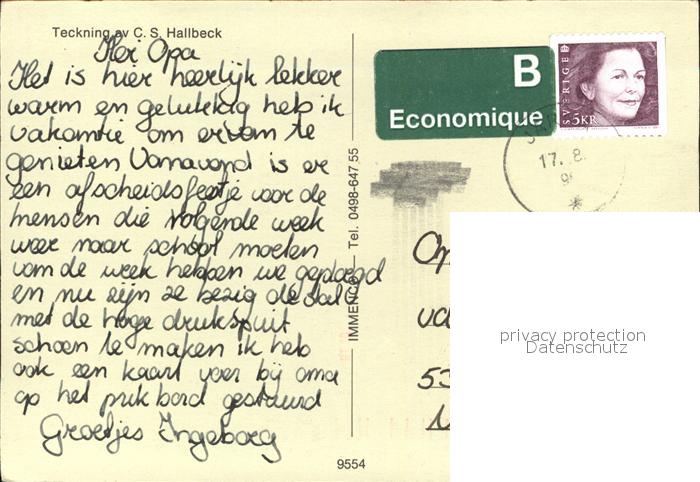 Teckning av C. S. Hallbeck
Hei Opa
Het is hier heerlijk lekker
warm en gelukkig heb ik
vakantie om ervan te
genieten Vanavond is er
een afscheidsfeetje voor de
mensen die volgende week
weer naar school moeten
van de week hebben we geploegd
en nu zijn ze bezig de stal
met de hoge drukspuit
schoon te maken ik heb
ook een kaart voor bij oma
op het prikbord gestuurd
Groetjes Ingeborg
IMMENCO – Tel. 0498-647 55
9554
B
Economique
SVERIGE
5KR
17. 8.
9
Op
va
53
privacy protection
Datenschutz